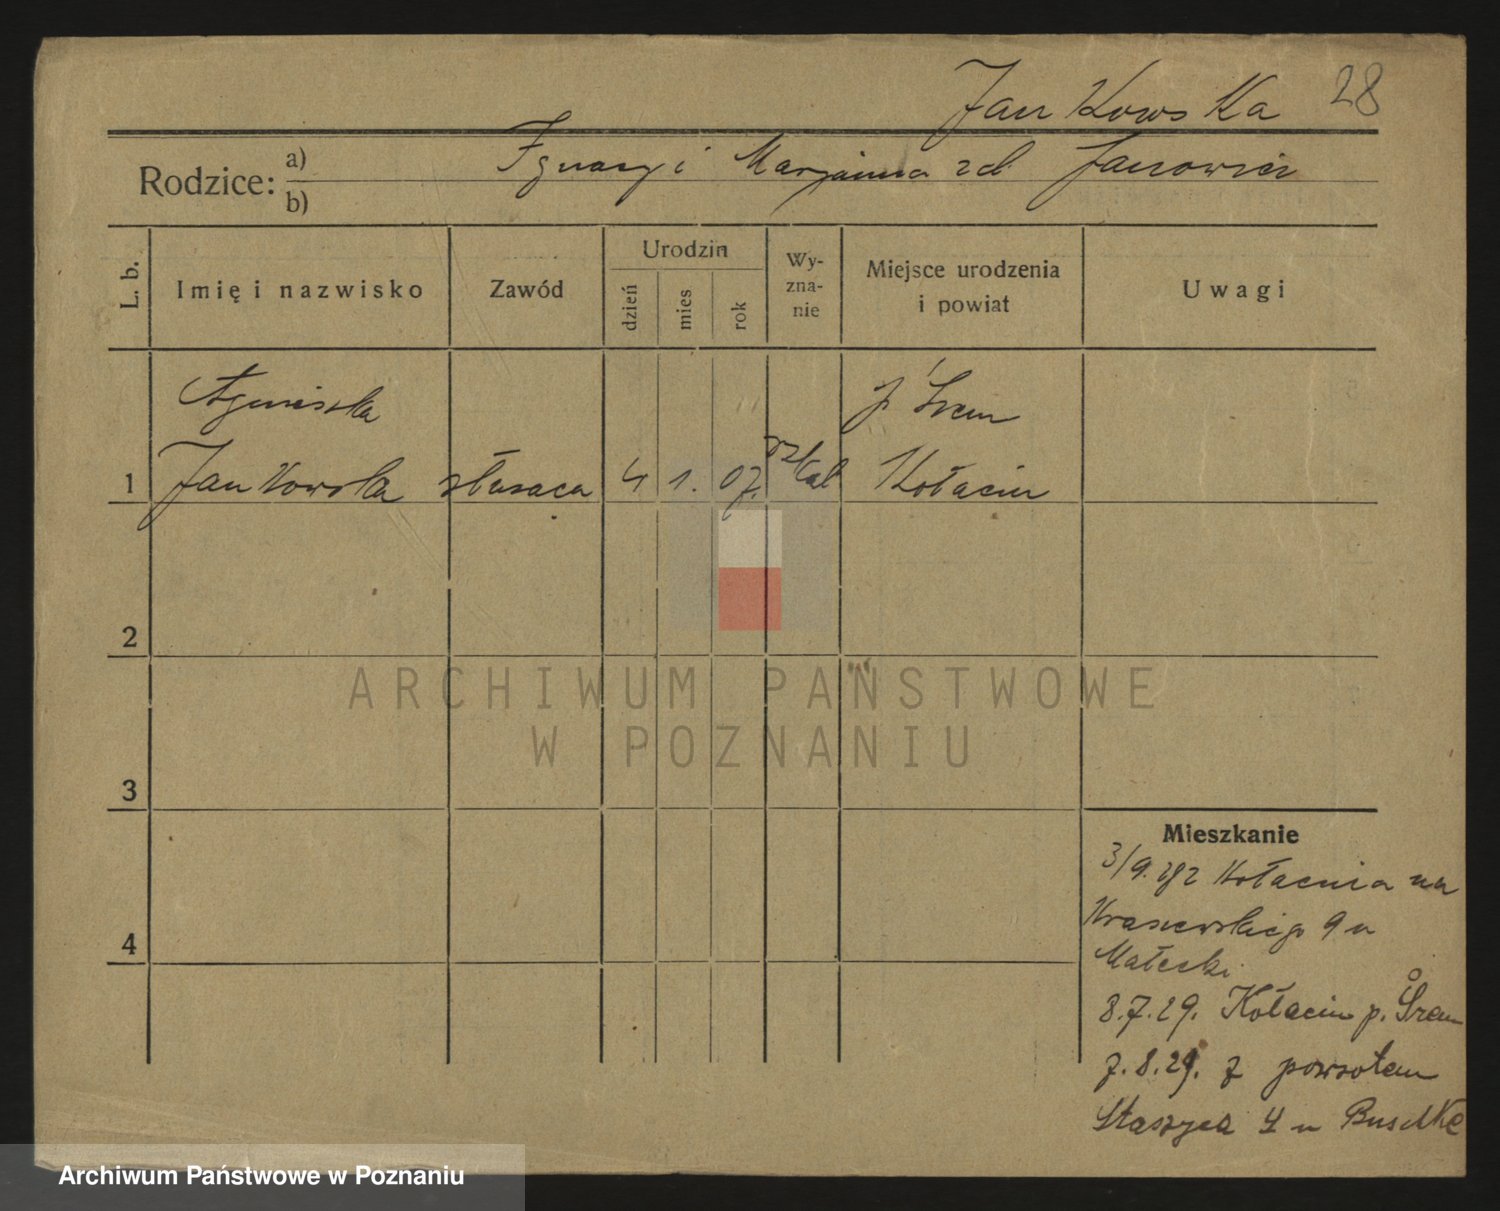 Jankowska 28
Rodzice: a) b)
Ignacy i Marjanna zd Janowicz
L. b.
Imię i nazwisko
Zawód
Urodzin
dzień
mies
rok
Wy-
zna-
nie
Miejsce urodzenia
i powiat
Uwagi
Agnieszka p. Śrem
1 Jankowska służaca 4 1. 07. rz/kat Kołacin
2
3
4
ARCHIWUM PAŃSTWOWE
W POZNANIU
Mieszkanie
3/9. 28 z Kołacina na
Kraszewskiego 9 u
Małecki
8.7.29. Kołacin p. Śrem
7.8.29. z powrotem
Staszyca 4 u
Archiwum Państwowe w Poznaniu